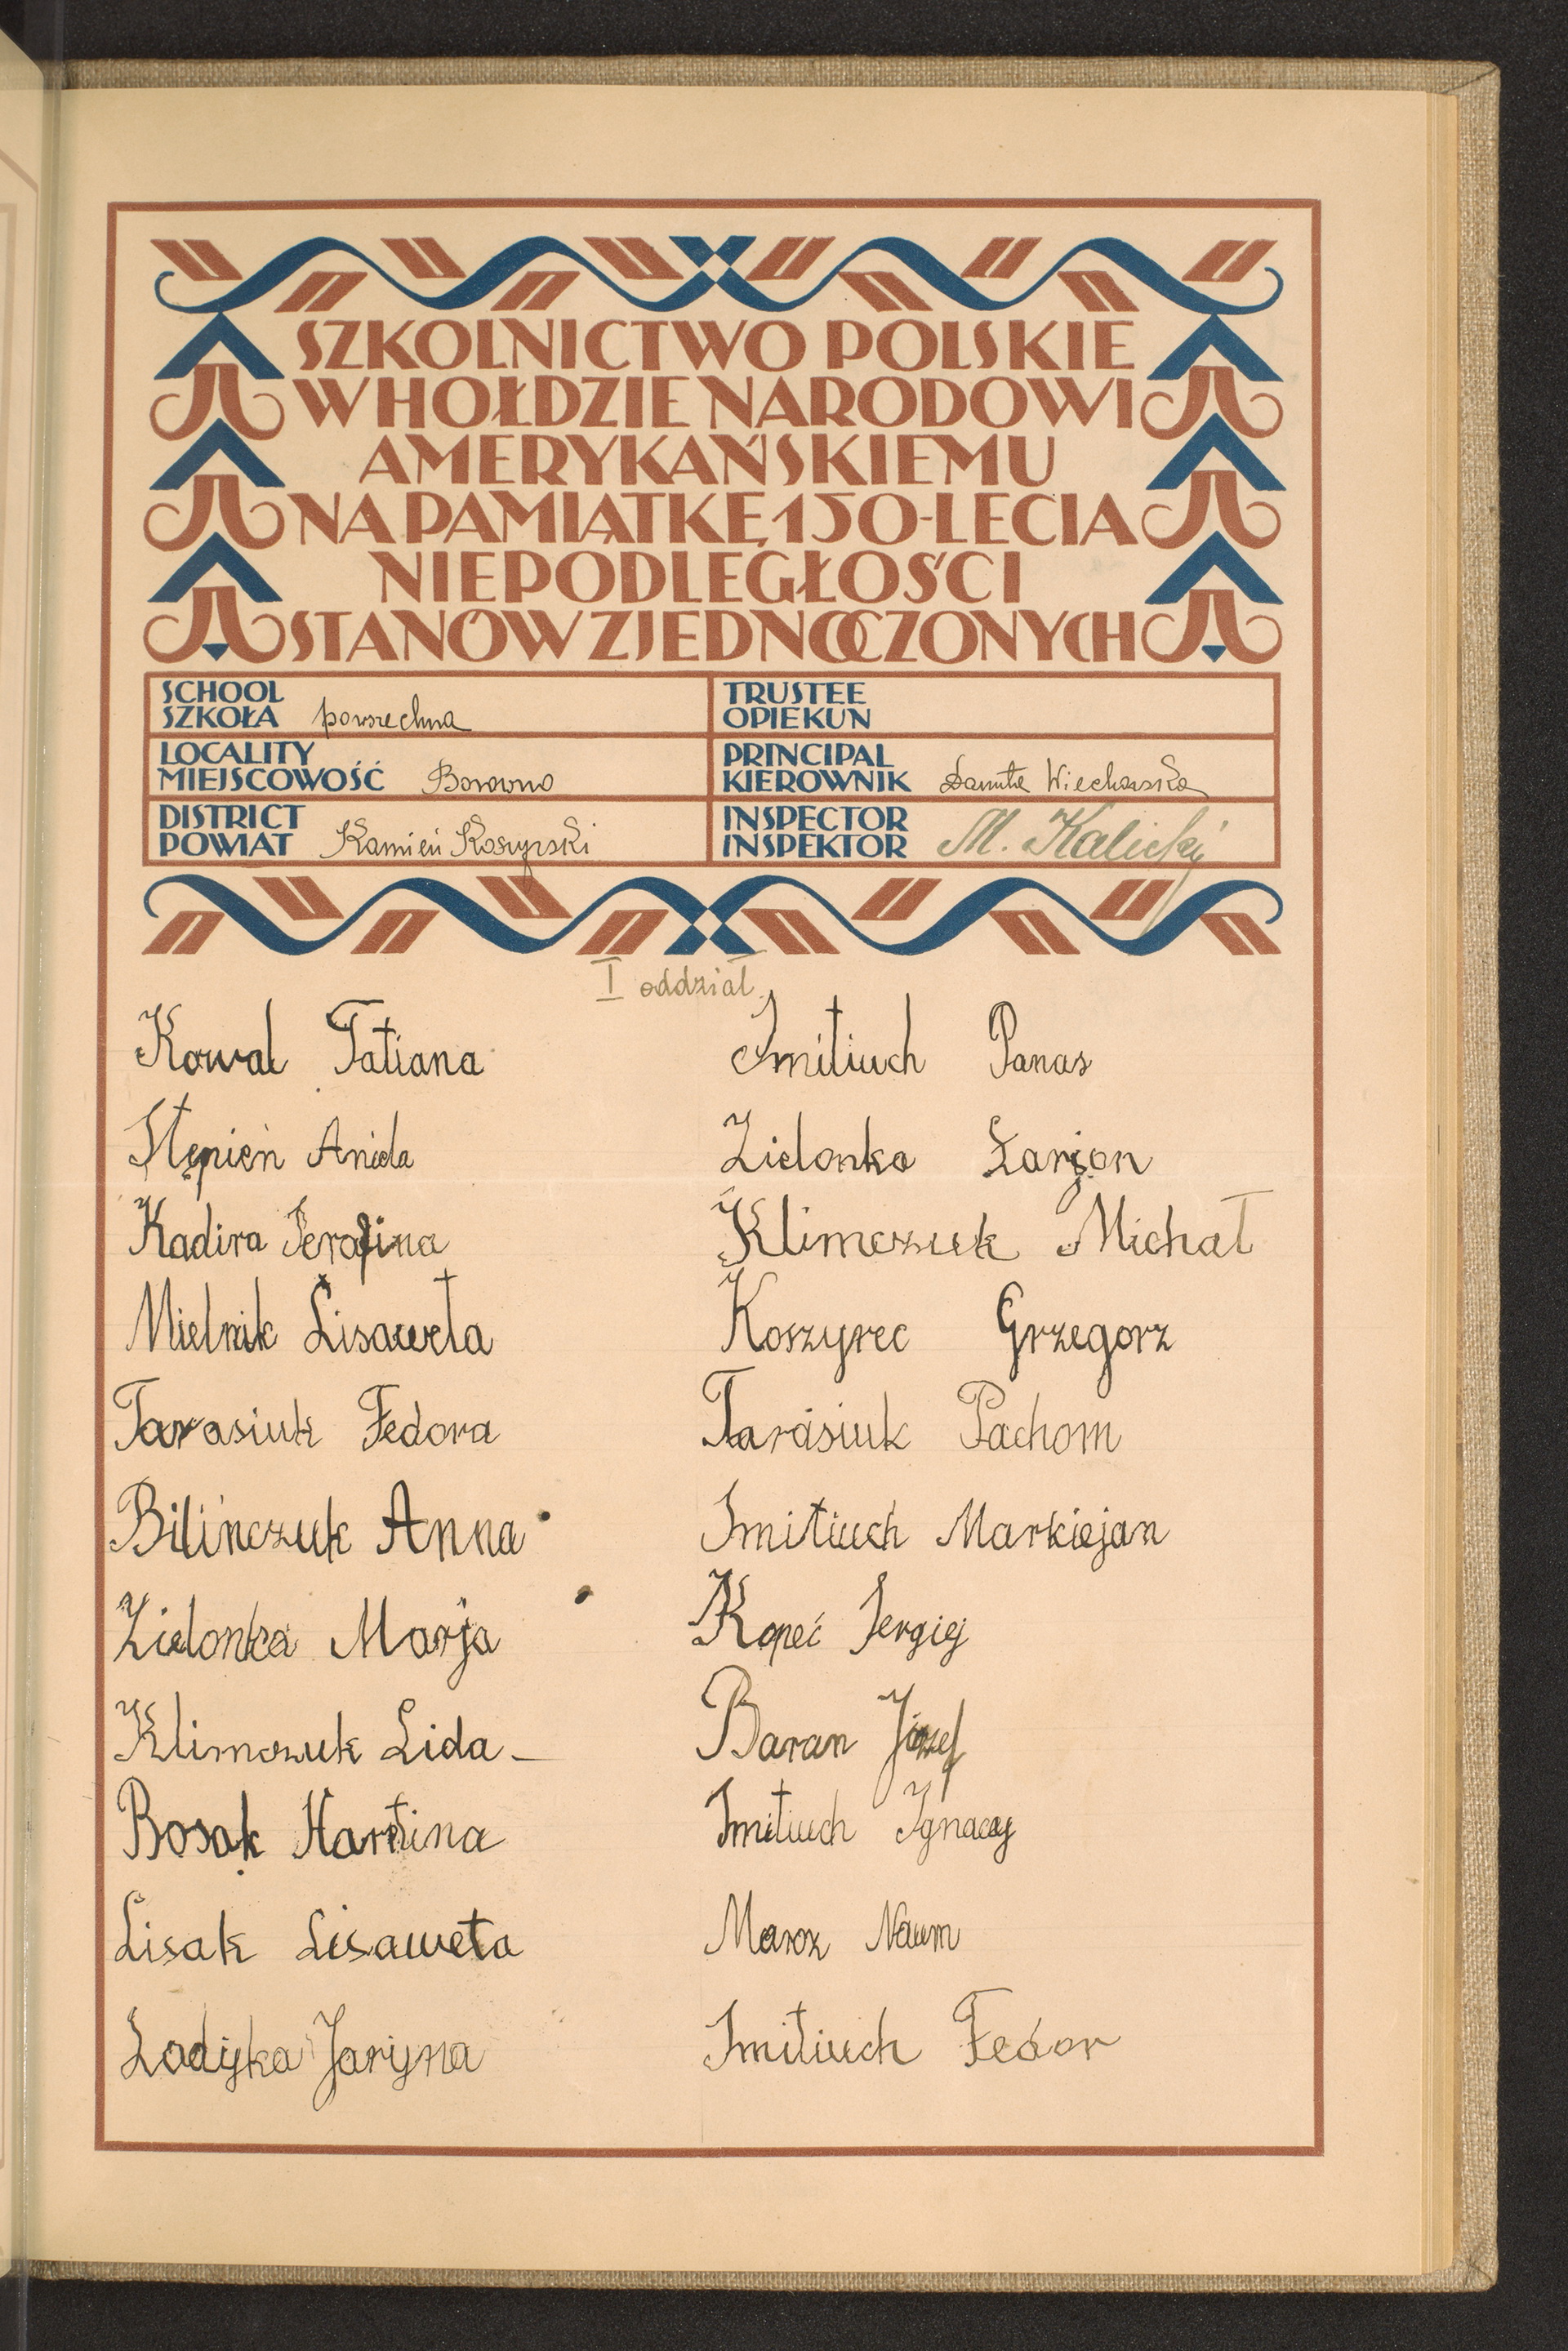 SZKOLNICTWO POLSKIE
W HOŁDZIE NARODOWI
AMERYKAŃSKIEMU
NA PAMIĄTKĘ 150-LECIA
NIEPODLEGŁOŚCI
STANÓW ZJEDNOCZONYCH
SCHOOL
SZKOŁA powszechna
TRUSTEE
OPIEKUN
LOCALITY
MIEJSCOWOŚĆ Borowno
PRINCIPAL
KIEROWNIK
DISTRICT
POWIAT Kamień Koszyrski
INSPECTOR
INSPEKTOR M. Kalicki
I oddział
Kowal Tatiana
Stępień Aniela
Kadira Serafina
Mielnik Lisaweta
Tarasiuk Fedora
Bilińczuk Anna
Zielonka Marja
Klimczuk Lida
Bosak
Lisak Lisaweta
Ladyka Jaryna
Smitiuch Panas
Zielonka Łarjon
Klimczuk Michał
Koszyrec Grzegorz
Tarasiuk Pachom
Smitiuch Markiejan
Kopeć Sergiej
Baran Józef
Smitiuch Ignacy
Naum
Smitiuch Fedor